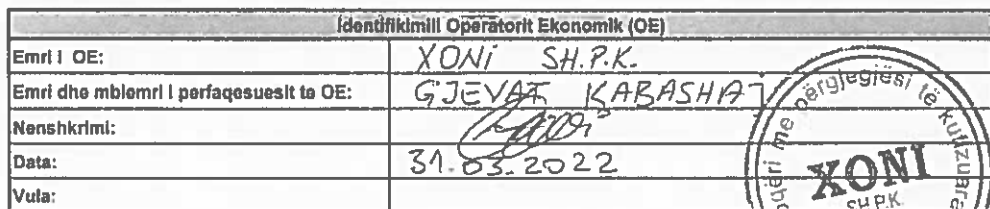 Identifikimili Operatorit Ekonomik (OE)
Emri i OE: XONI SH.P.K.
Emri dhe mbiemri i perfaqesuesit te OE: GJEVAT KABASHAJ
Nenshkrimi:
Data: 31.03.2022
Vula:
me përgjegjësi të kufizuara
XONI
SH.P.K.